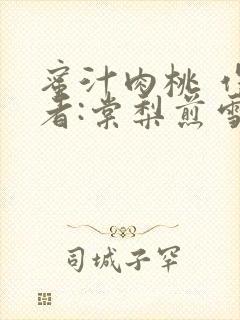 蜜汁肉桃
者:棠梨煎雪
司城子罕